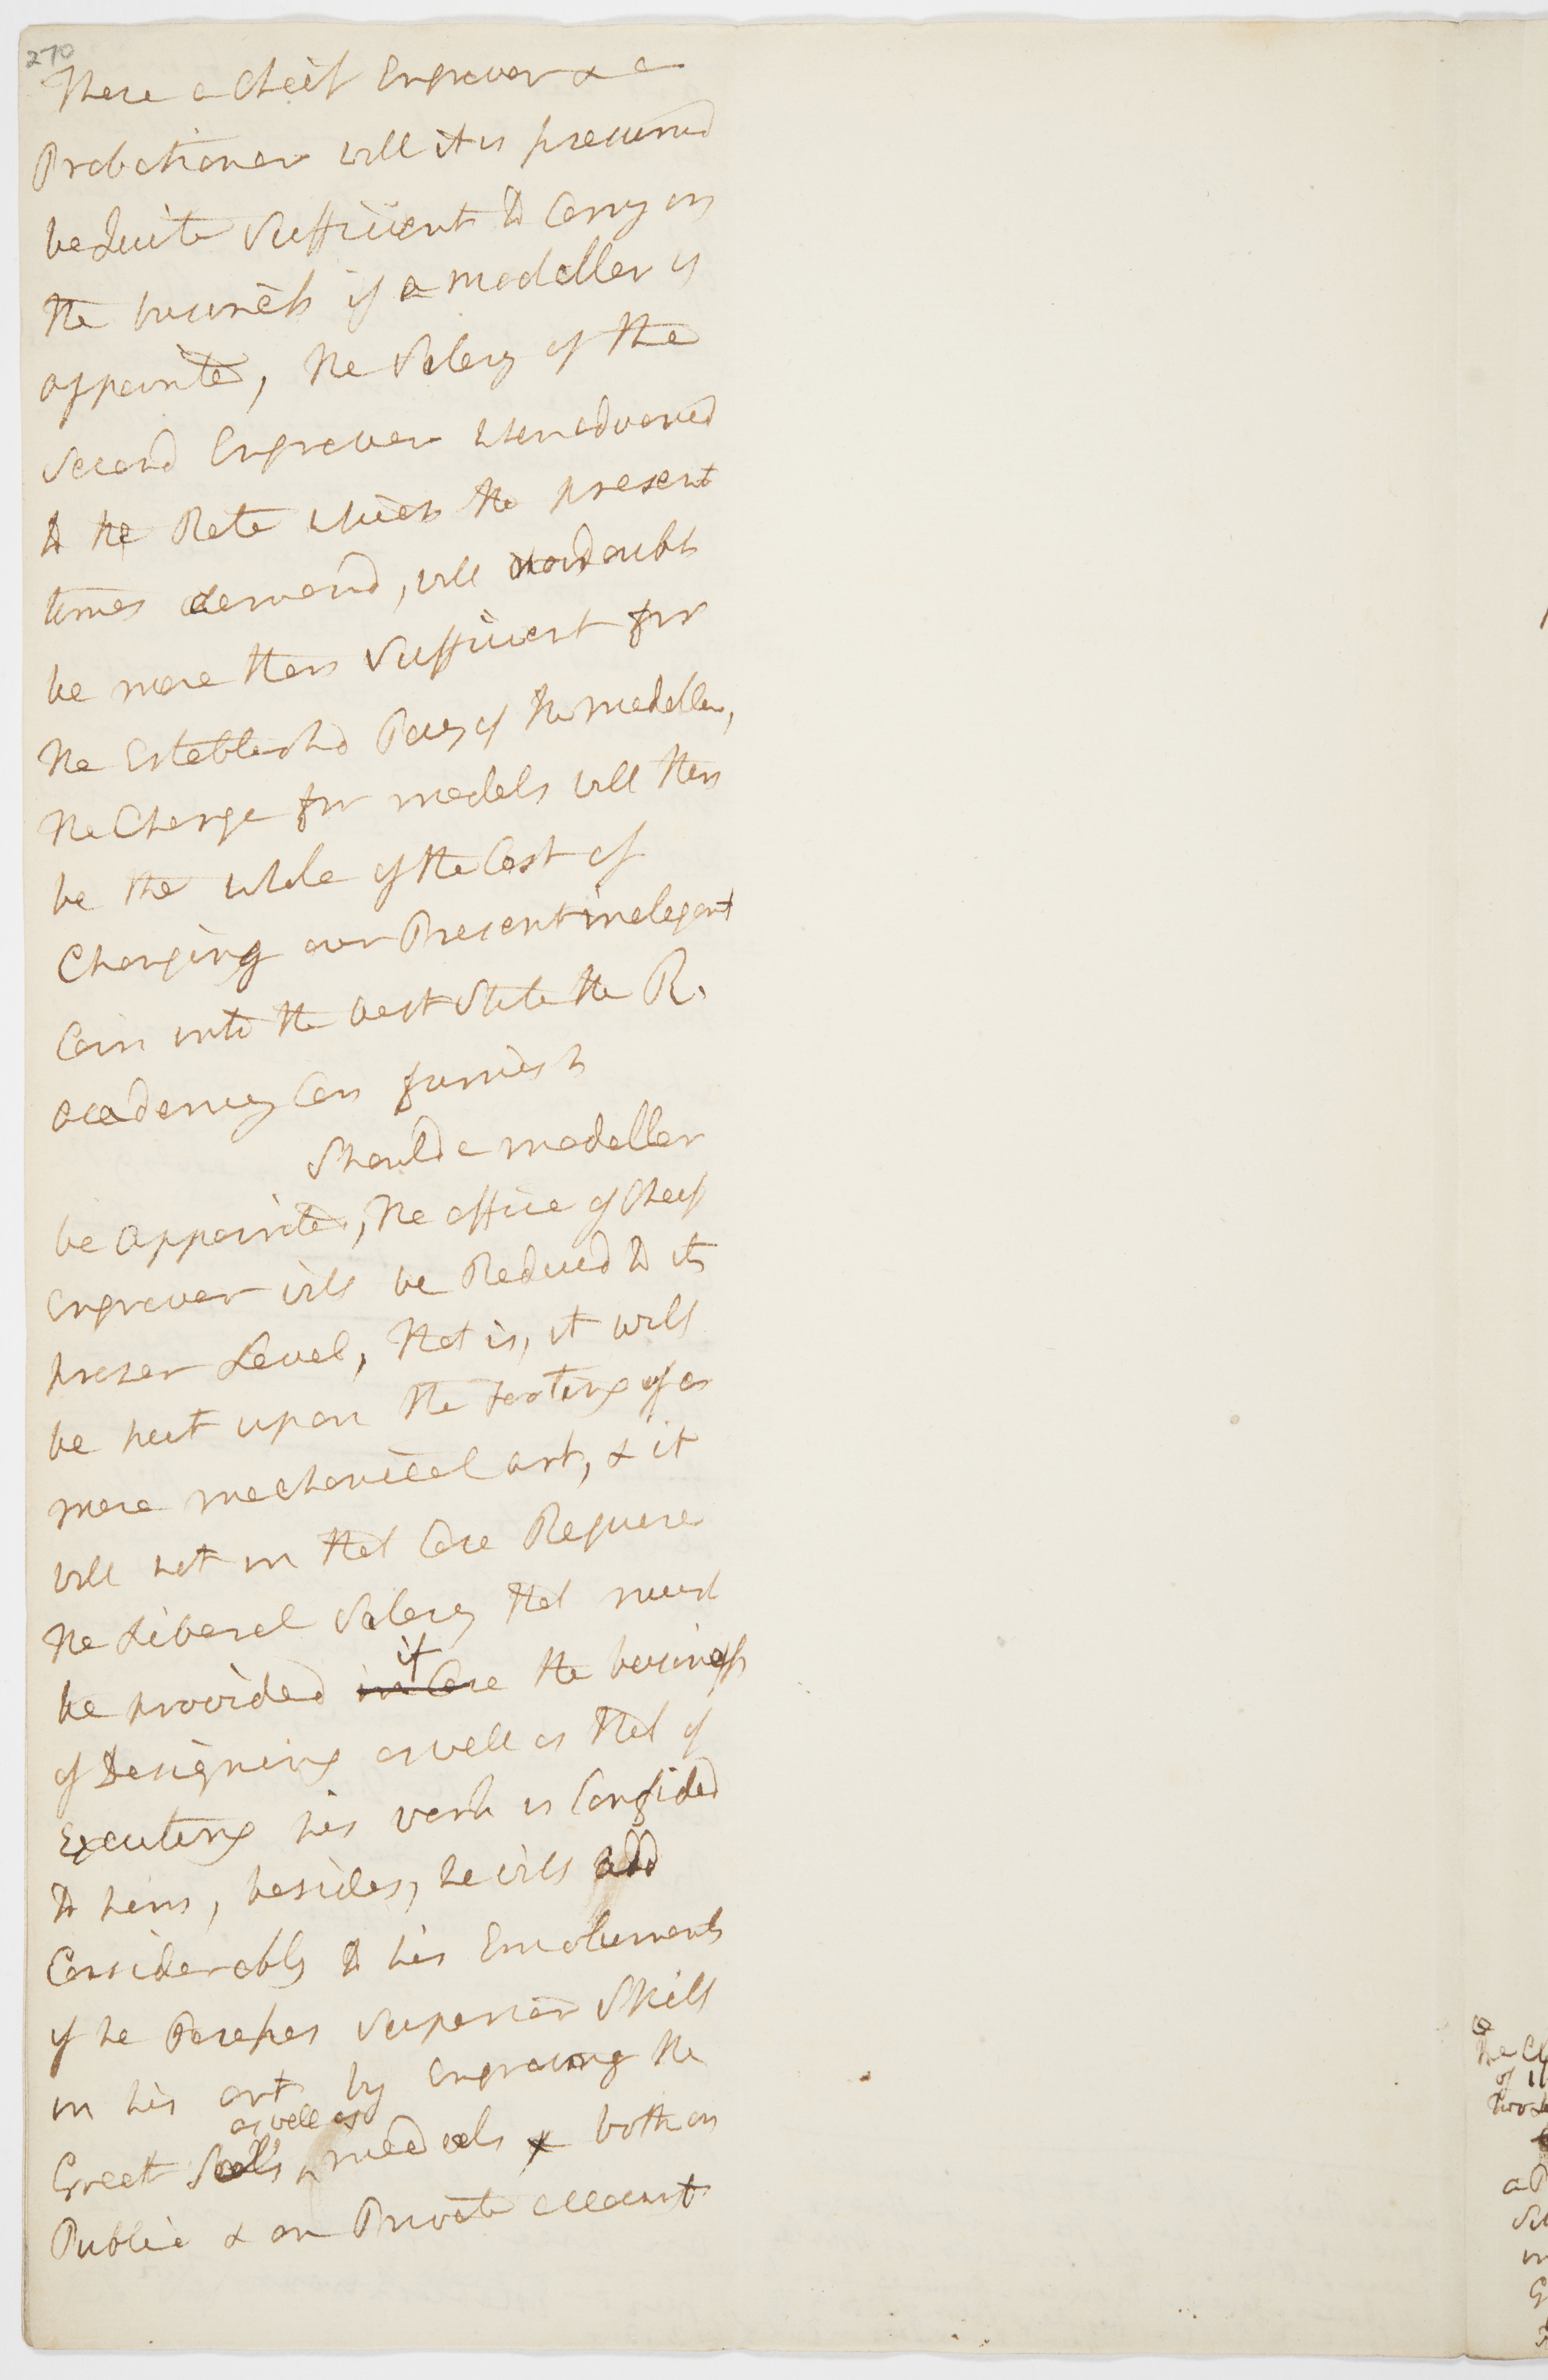 270
There a Cheif Engraver & a
Probationer will it is presumd
be Quite Sufficient to Carry on
the business if a modeller is
appointed, the Salary of the
Second Engraver when advancd
to the Rate which the present
times demand, will no doubt
be more than Sufficient for
the Establishd Pay of the modeller,
the Charge for models will then
be the whole of the Cost of
Changing our Present inelegant
Coin into the best State the R.
academy Can furnish
Should a modeller
be appointed, the office of Cheif
Engraver will be Reducd to its
proper Level, that is, it will
be put upon the footing of a
mere mechanical art, & it
will not in that Case Require
the Liberal Salary that must
be provided in Case if the business
of Designing as well as that of
Executing his work is Confided
to him, besides, he will add
Considerably to his Emoluments
if he Possesses Superior Skill
in his art by Engraving the
Great Seals as well as medals & both on
Public & on Private account